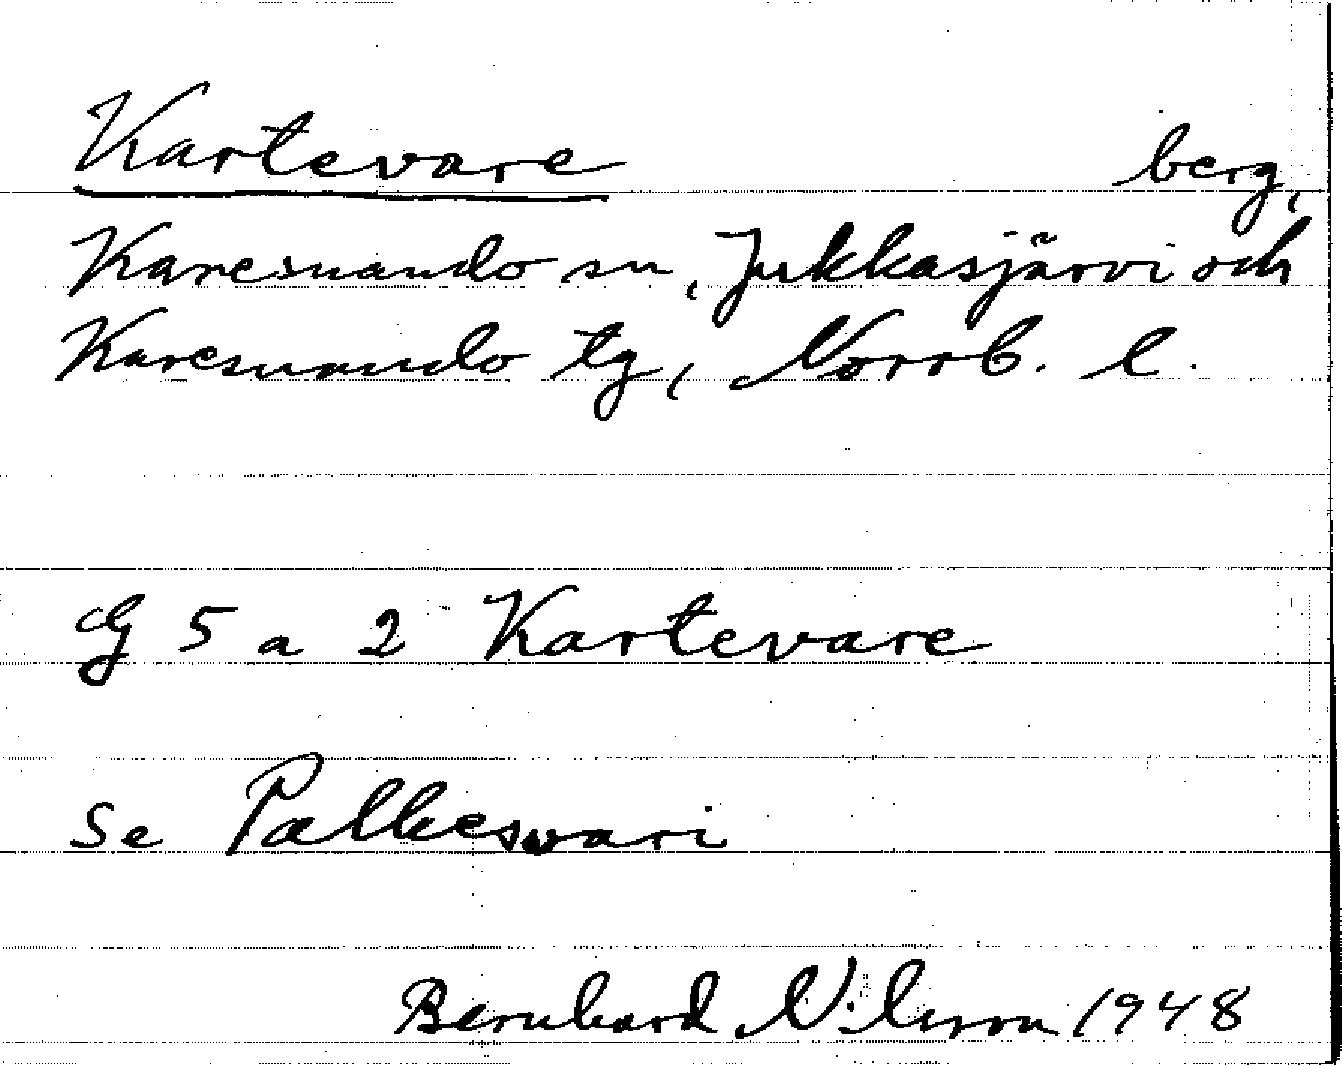 Kartevare berg,
Karesuando sn, Jukkasjärvi och
Karesuando tg, Norrb. l.
G 5 a 2 Kartevare
se Palkesvari
Bernhard Nilsson 1948